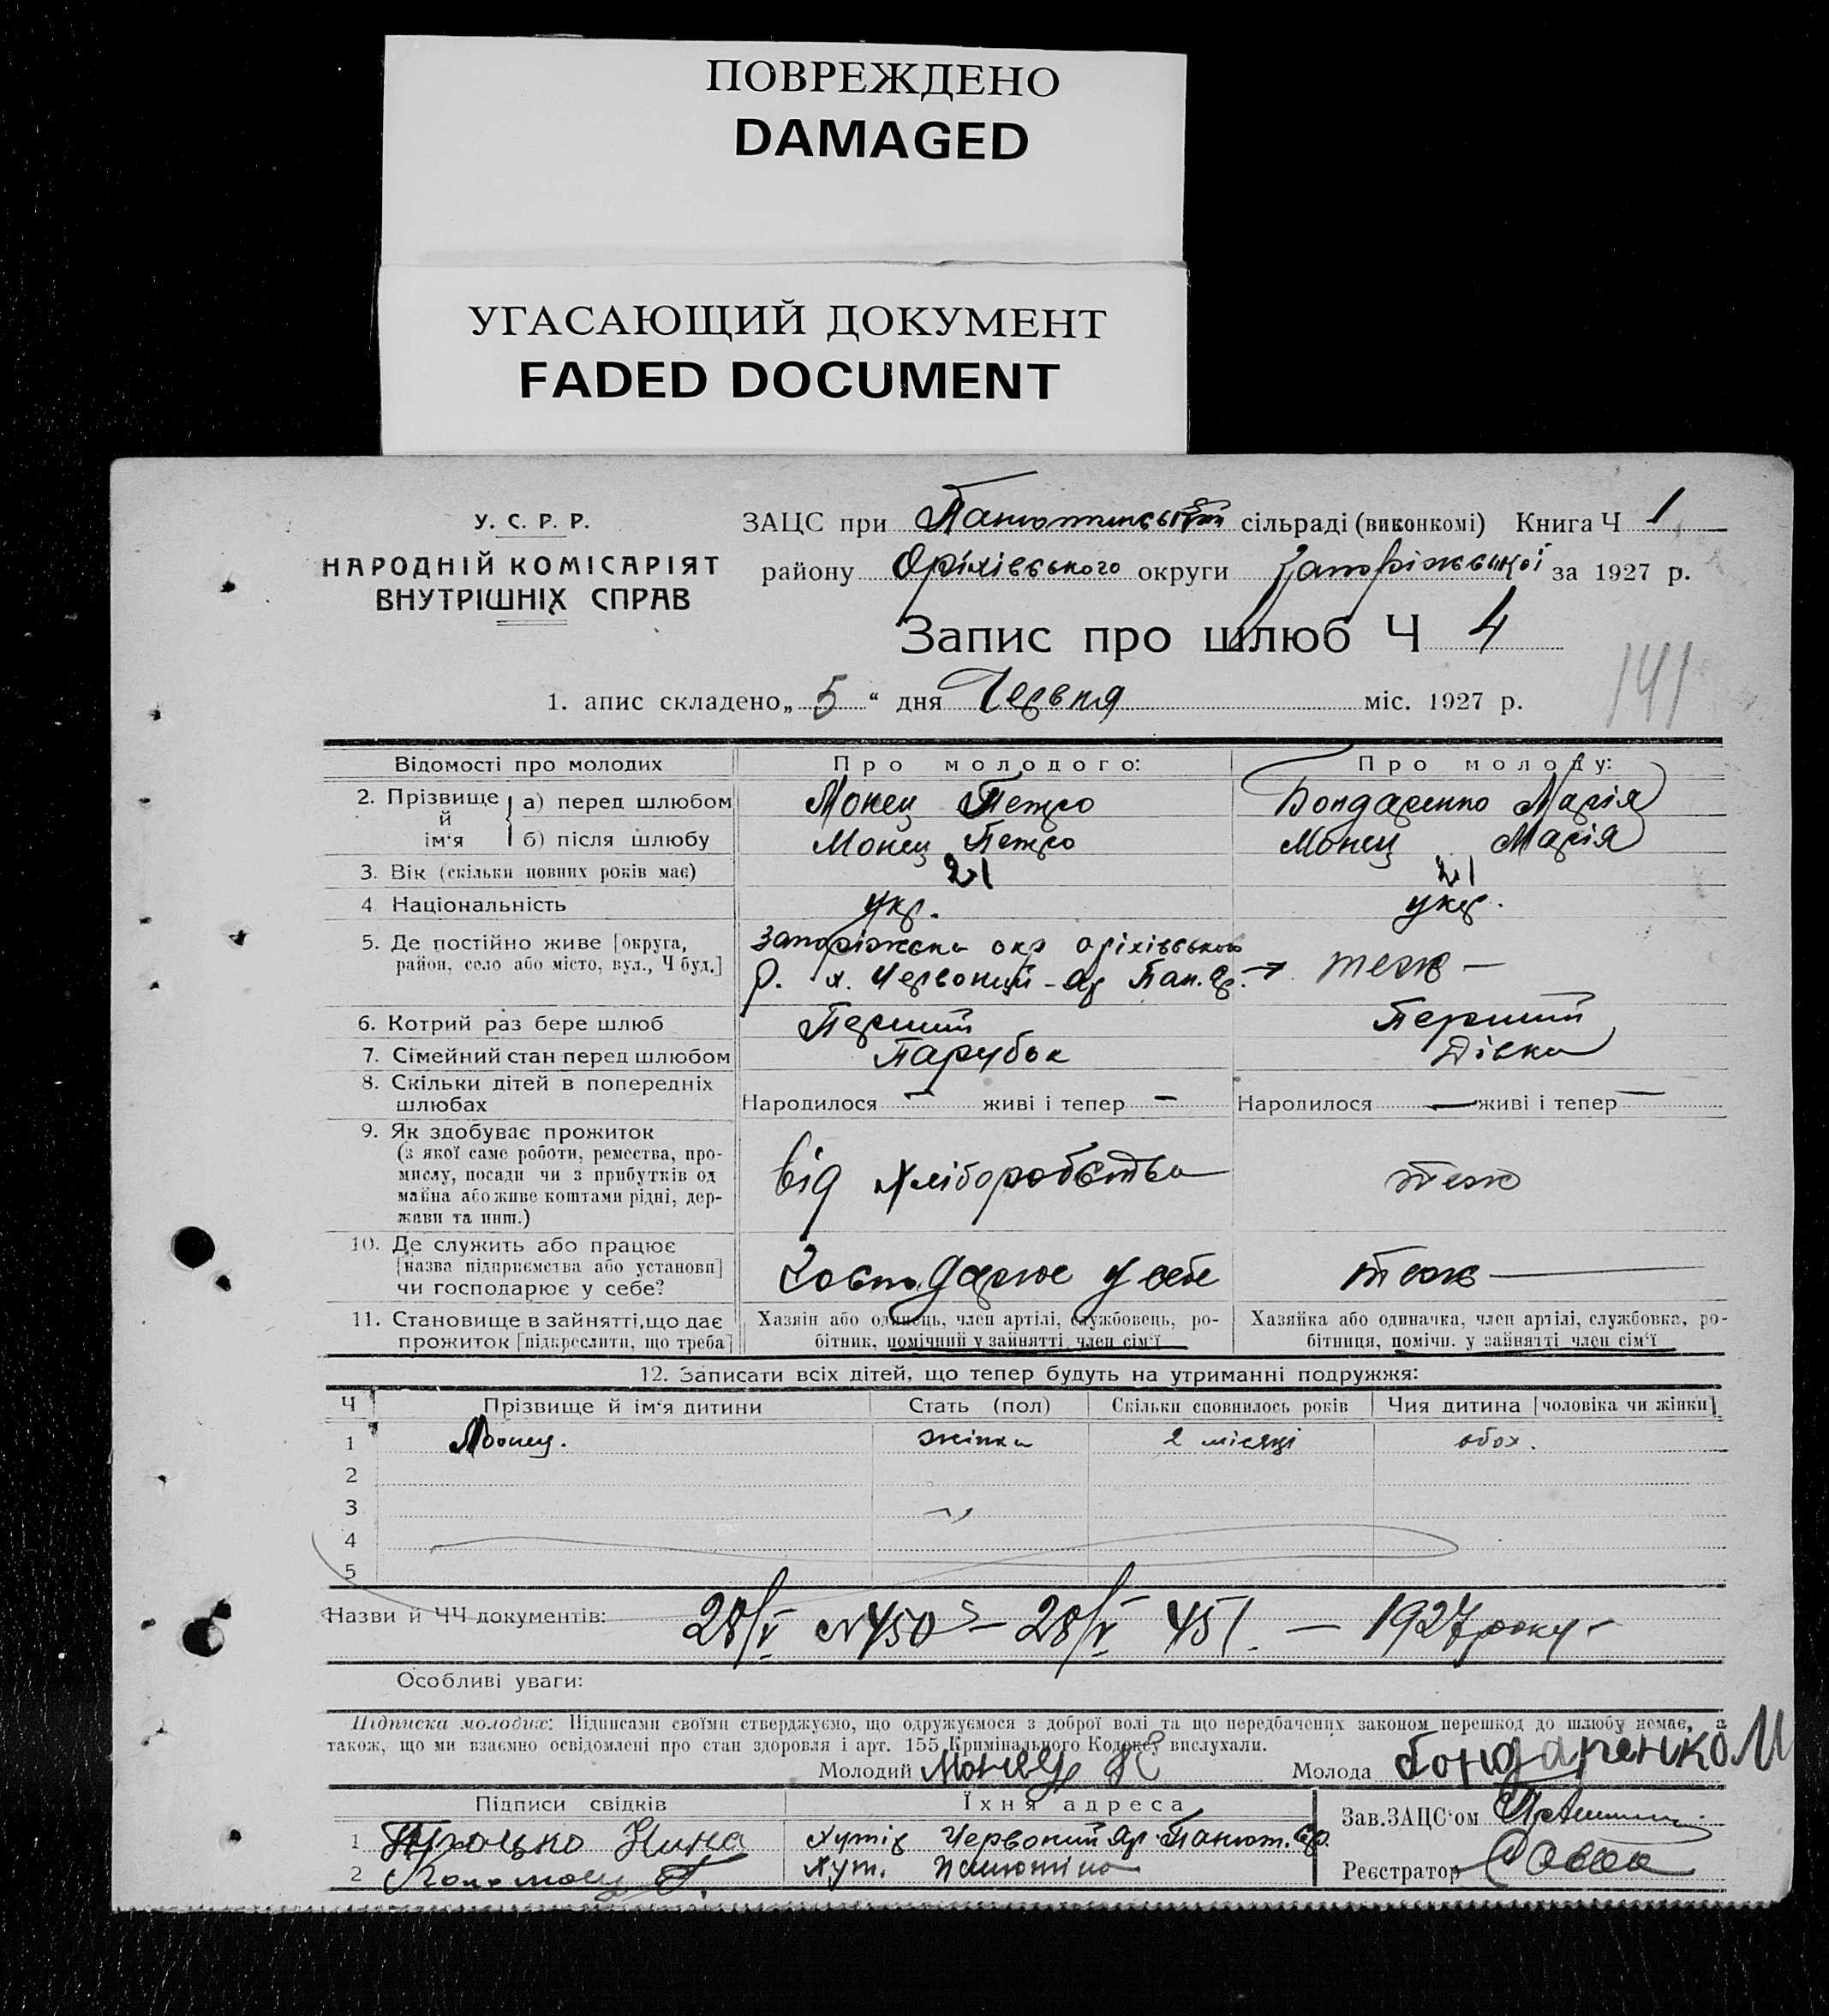 ПОВРЕЖДЕНО
DAMAGED
УГАСАЮЩИЙ ДОКУМЕНТ
FADED DOCUMENT
У. С. Р. Р.
НАРОДНІЙ КОМІСАРІЯТ
ВНУТРІШНІХ СПРАВ
ЗАЦС при сільраді (виконкомі) Книга Ч 1
району Оріхівського округи Запоріжської за 1927 р.
Запис про шлюб Ч 4
141
1. апис складено „ 5 “ дня Червня міс. 1927 р.
Відомості про молодих Про молодого: Про молоду:
2. Прізвище й ім‘я а) перед шлюбом Монец Петро Бондаренко Марія
б) після шлюбу Монец Петро Монец Марія
3. Вік (скільки повних років має) 21 21
4 Національність укр. укр.
5. Де постійно живе [округа, Запоріжська окр оріхівського
район, село або місто, вул., Ч буд.] р. х. Червоний-яр Пан. теж —
6. Котрий раз бере шлюб Перший Перший
7. Сімейний стан перед шлюбом Парубок Дівка
8. Скільки дітей в попередніх
шлюбах Народилося — живі і тепер — Народилося — живі і тепер —
9. Як здобуває прожиток
(з якої саме роботи, ремества, про-
мислу, посади чи з прибутків од від хліборобства теж
майна або живе коштами рідні, дер-
жави та инш.)
10. Де служить або працює
[назва підприємства або установи] Господарює у себе теж —
чи господарює у себе?
11. Становище в зайнятті, що дає Хазяїн або одинець, член артілі, службовець, ро- Хазяйка або одиначка, член артілі, службовка, ро-
прожиток [підкреслити, що треба] бітник, помічний у зайнятті член сім‘ї бітниця, помічн. у зайнятті член сім‘ї
12. Записати всіх дітей, що тепер будуть на утриманні подружжя:
Ч Прізвище й ім‘я дитини Стать (пол) Скільки сповнилось років Чия дитина [чоловіка чи жінки]
1 Монец. жінка 2 місяці обох.
2
3
4
5
Назви й ЧЧ документів: 28/V №450 — 28/V 451. — 1927 року
Особливі уваги:
Підписка молодих: Підписами своїми стверджуємо, що одружуємося з доброї волі та що передбачених законом перешкод до шлюбу немає, а
також, що ми взаємно освідомлені про стан здоровля і арт. 155 Кримінального Кодексу вислухали.
Молодий Монец Молода бондаренко М
Підписи свідків Їхня адреса Зав. ЗАЦС‘ом
1 Нина Хутір Червоний Яр Панют.
2 Хут. Панютіна
Реєстратор